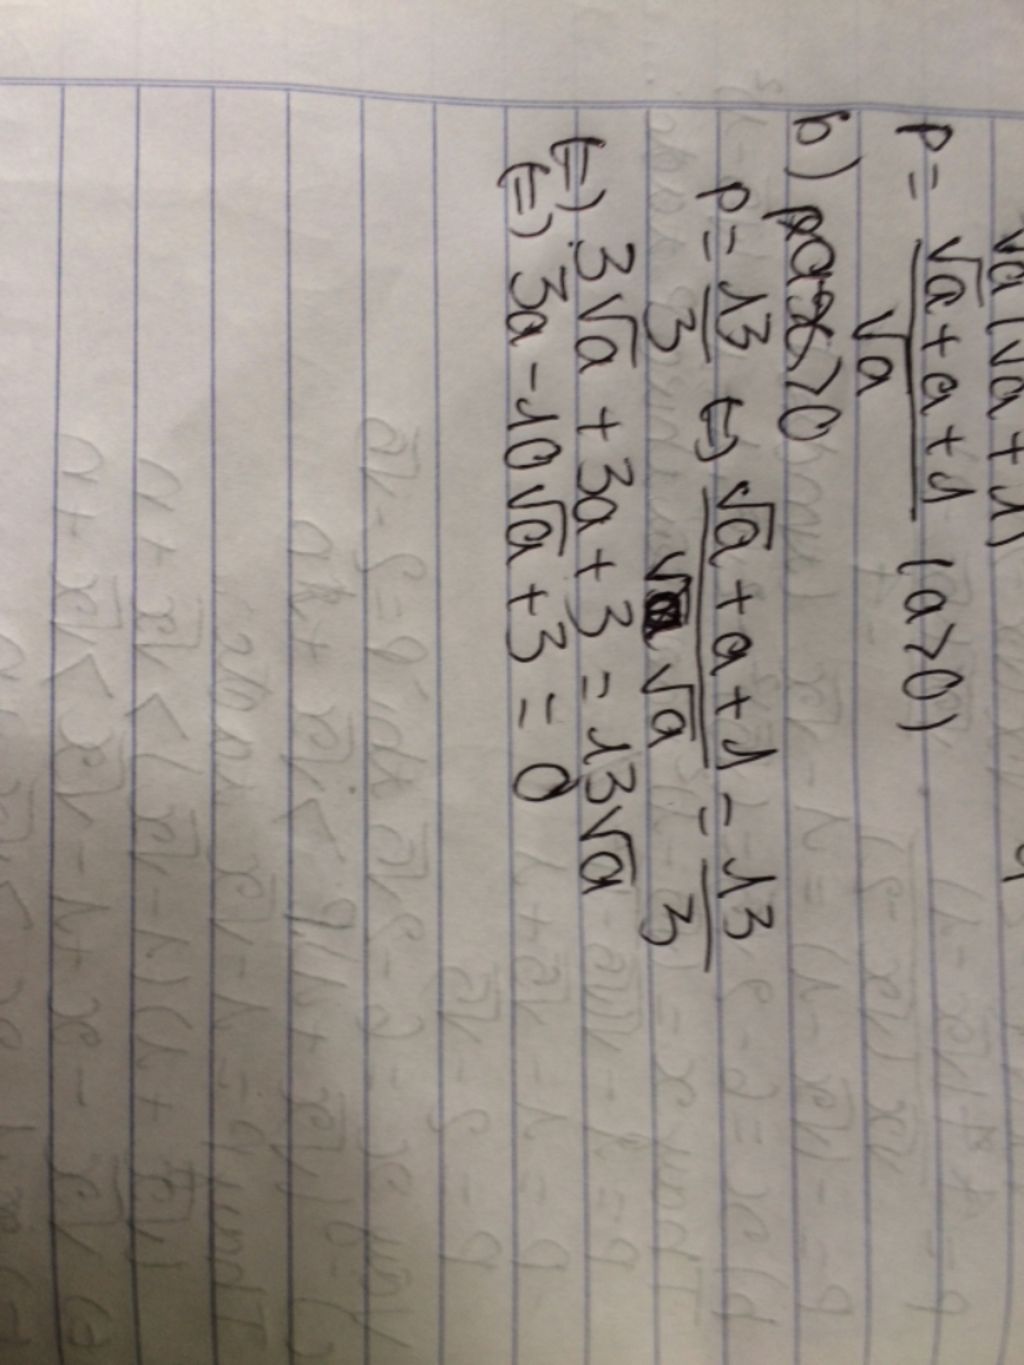 √a(√a+1)
P = (√a + a + 1)/√a (a>0)
b) a>0
P = 13/3 (=) (√a + a + 1)/√a = 13/3
(=) 3√a + 3a + 3 = 13√a
(=) 3a - 10√a + 3 = 0